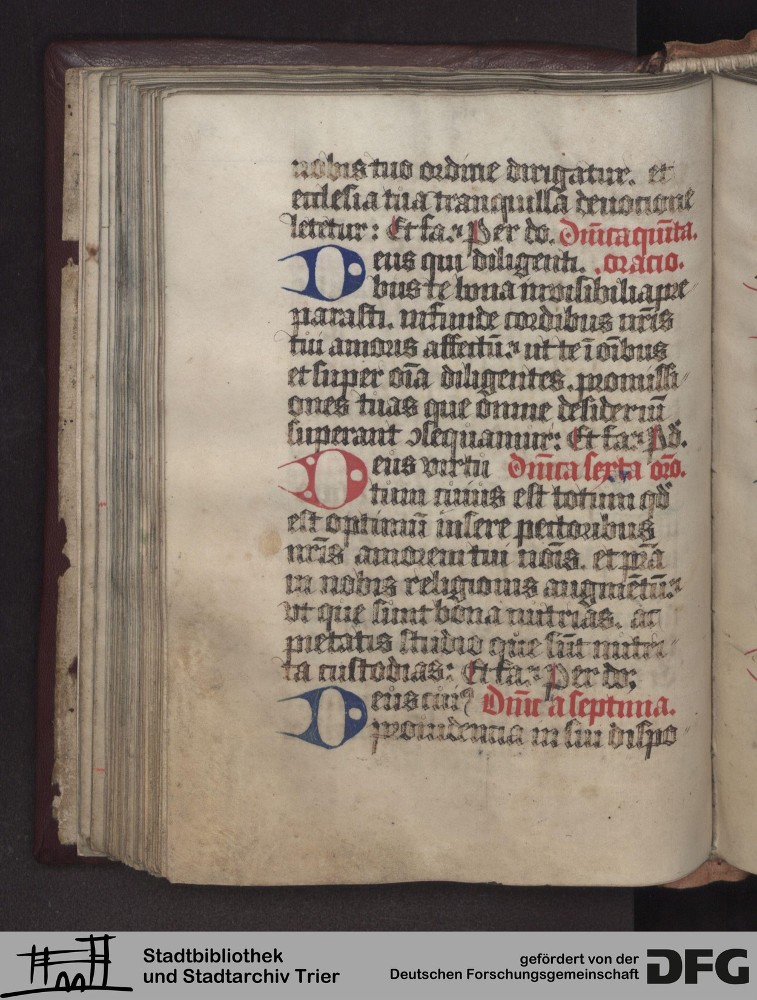 nobis tuo ordine dirigatur. et
ecclesia tua tranquilla deuocione
letetur: Et fa. Per do. Dn̄ica quīta.
Deus qui diligenti. oracio.
bus te bona inuisibilia pre
parasti. infunde cordibus nr̄is
tui amoris affectū. ut te ī oībus
et super oīa diligentes. promissi
ones tuas que omne desideriū
superant ꝯsequamur: Et fa. P d̄.
Deus virtu Dn̄ica sexta or̄o.
tum cuius est totum qd̄
est optimū insere pectoribus
nr̄is amorem tui nōis. et p̄ra
in nobis religionis augmētū.
vt que sunt bona nutrias. ac
pietatis studio que sūt nutri
ta custodias: Et fa. Per do:
Deus cuiꝰ Dn̄ica septima.
prouidencia in sui dispo
Stadtbibliothek
und Stadtarchiv Trier
gefördert von der
Deutschen Forschungsgemeinschaft
DFG